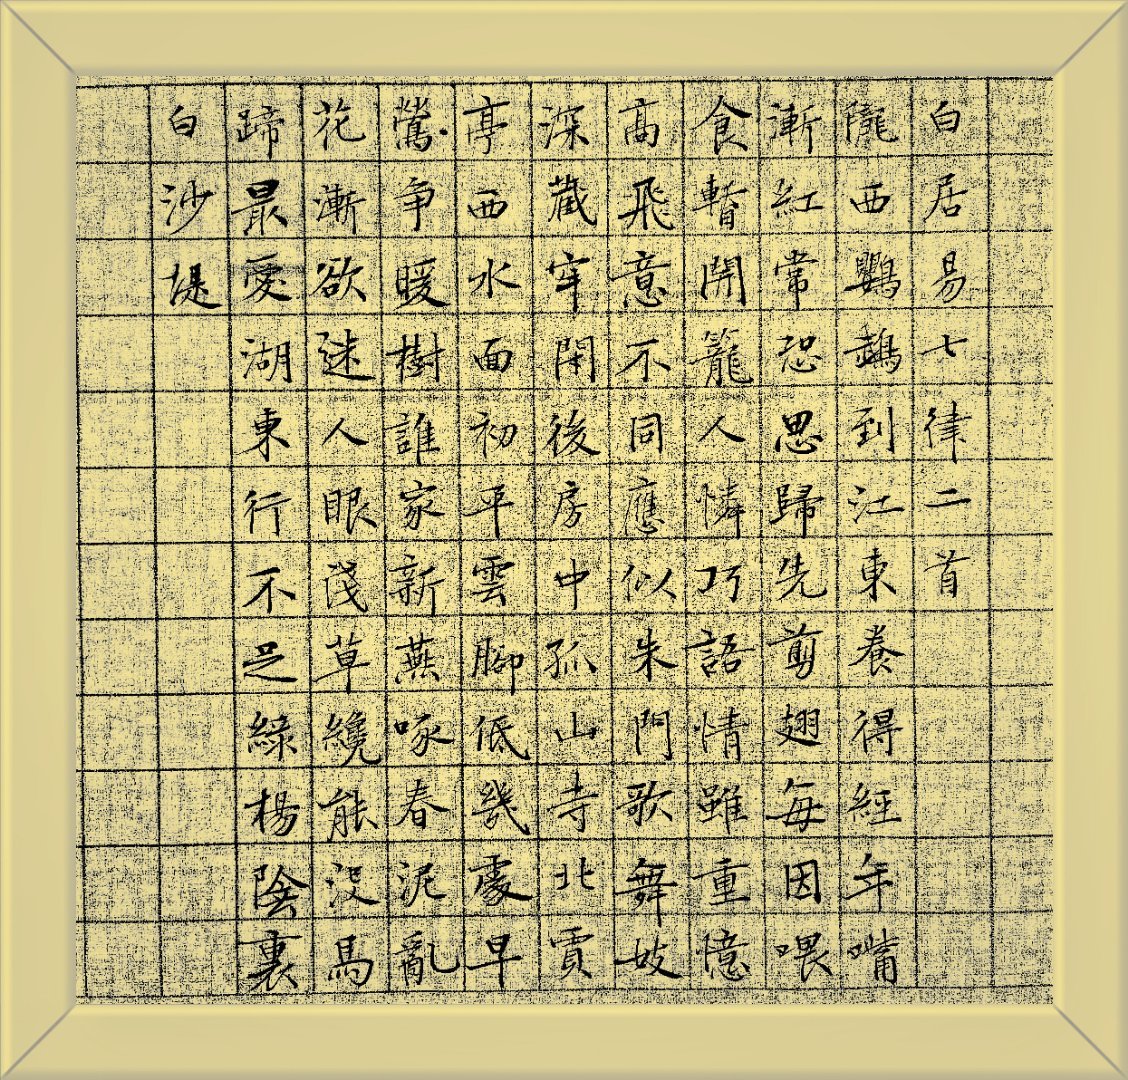 白居易七律二首
隴西鸚鵡到江東養得經年嘴
漸紅常恐思歸先剪翅每因喂
食暫開籠人憐巧語情雖重憶
高飛意不同應似朱門歌舞妓
深藏牢閉後房中孤山寺北賈
亭西水面初平雲腳低幾處早
鶯争暖樹誰家新燕啄春泥亂
花漸欲迷人眼淺草纔能没馬
蹄最愛湖東行不足綠楊陰裏
白沙堤